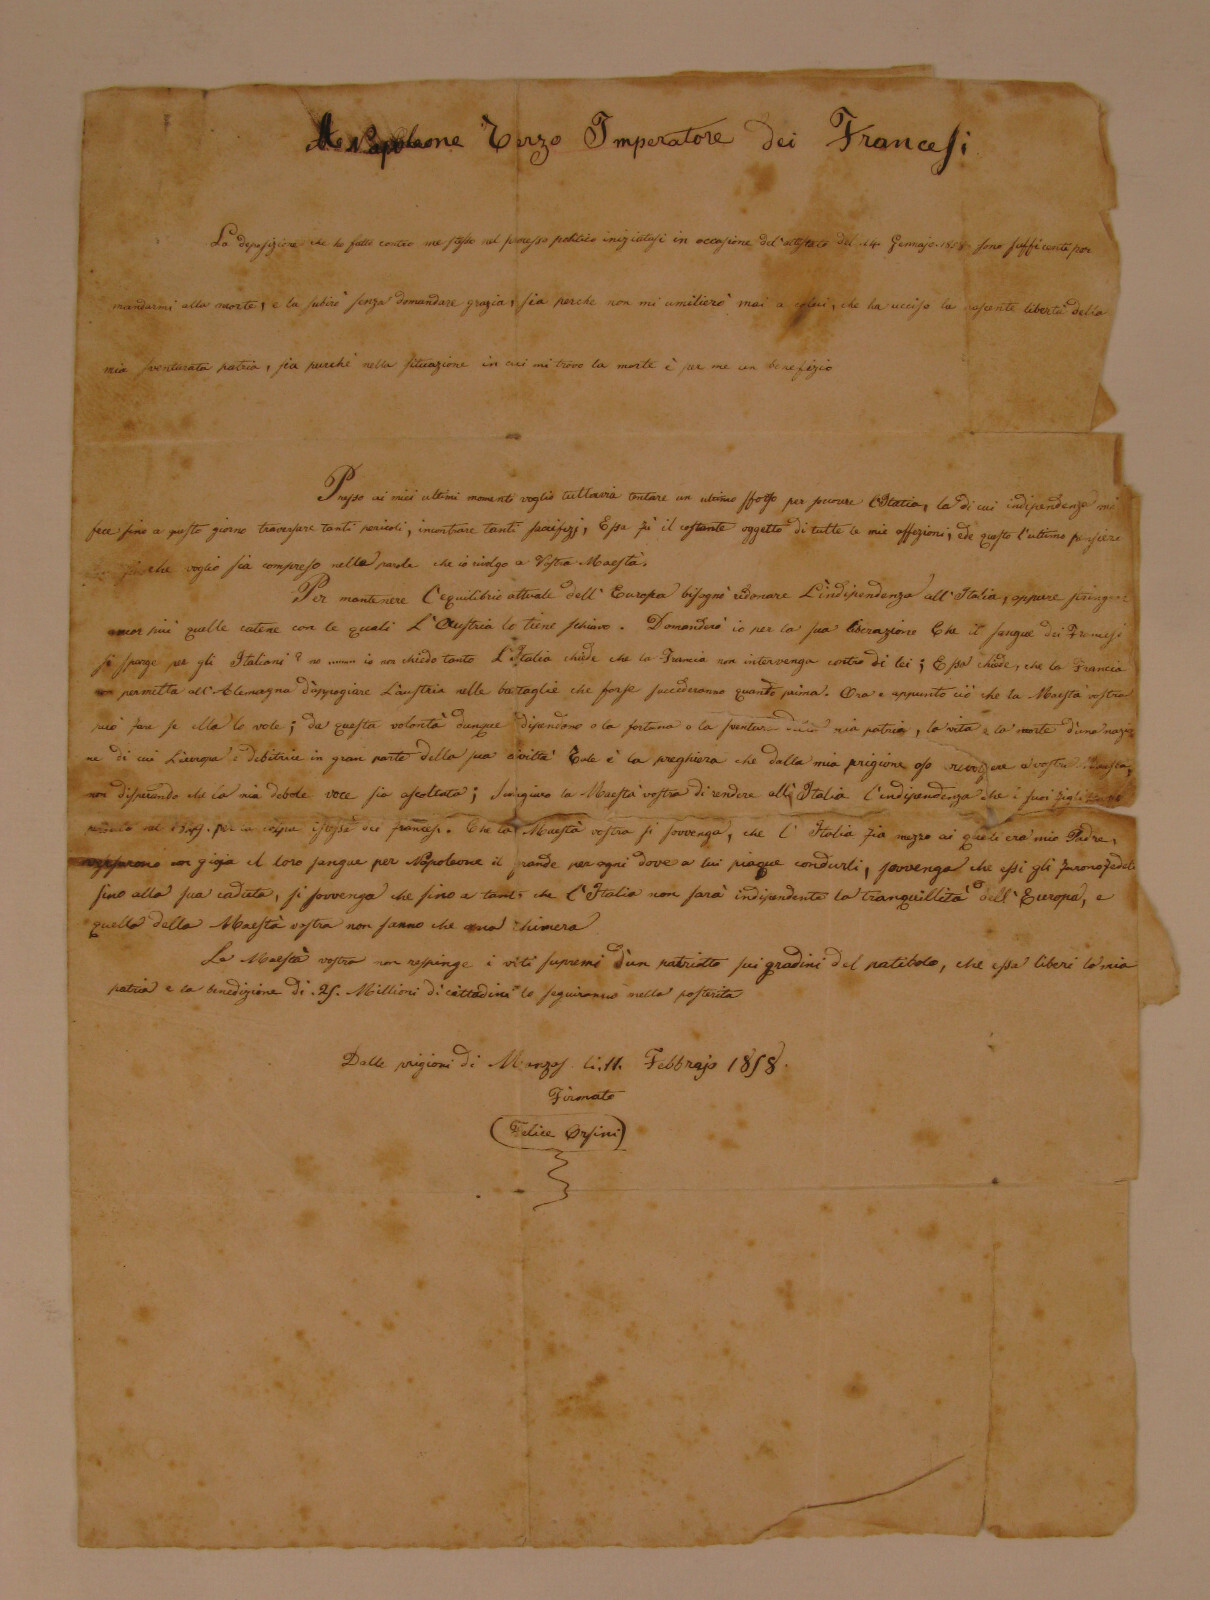 A Napoleone Terzo Imperatore dei Francesi
La deposizione che ho fatto contro me stesso nel processo politico iniziatosi in occasione del'attentato del 14. Gennajo. 1858. sono sufficente per
mandarmi alla morte, e la subirò senza domandare grazia, sia perche non mi umilierò mai a colui, che ha ucciso la nascente libertà della
mia sventurata patria, sia perchè nella situazione in cui mi trovo la morte è per me un benefizio
Presso ai miei ultimi momenti voglio tuttavia tentare un ultimo sforzo per l'Italia, la di cui indipendenza mi
fece sino a questo giorno traversare tanti pericoli, incontrare tanti sacrifizj, Essa fù il costante oggetto di tutte le mie affezioni, ed è questo l'ultimo pensiere
che voglio sia compreso nella parola che io rivolgo a Vostra Maestà.
Per mantenere l'equilibrio attuale dell'Europa bisogna ridonare L'indipendenza all'Italia, oppure
ancor più quelle catene con le quali L'Austria lo tiene schiavo. Domanderò io per la sua liberazione Che il sangue dei Francesi
si sparge per gli Italiani? no io non chiedo tanto L'Italia chiede che la Francia non intervenga contro di lei; Essa chiede, che la Francia
non permetta all'Alemagna d'appogiare L'austria nelle battaglie che forse succederanno quanto prima. Ora e appunto ciò che la Maestà vostra
può fare se ella lo vole; da questa volontà dunque dipendono o la fortuna o la sventura mia patria, la vita e la morte d'una nazio
ne di cui L'europa è debitrice in gran parte della sua civiltà Tale è la preghiera che dalla mia prigione oso a vostra Maestà,
non disperando che la mia debole voce sia ascoltata; Scongiuro la Maestà vostra di rendere all'Italia l'indipendenza che i suoi figli
nel 1849. per la colpa istessa dei francesi. Che la Maestà vostra si sovvenga, che l'Italia fra mezzo ai quali era mio Padre,
con gioja il loro sangue per Napoleone il grande per ogni dove a lui piaque condurli, sovvenga che essi gli furono fedeli
sino alla sua caduta, si sovvenga che sino a tanto che l'Italia non sarà indipendente la tranquillità dell'Europa, e
quella della Maestà vostra non sanno che una chimera
La Maestà vostra non respinge i voti supremi d'un patriotto sui gradini del patibolo, che essa liberi la mia
patria e la benedizione di .25. Millioni di cittadini lo seguiranno nella posterità
Dalle prigioni di Manzas li.11. Febbrajo 1858.
Firmato
(Felice Orsini)